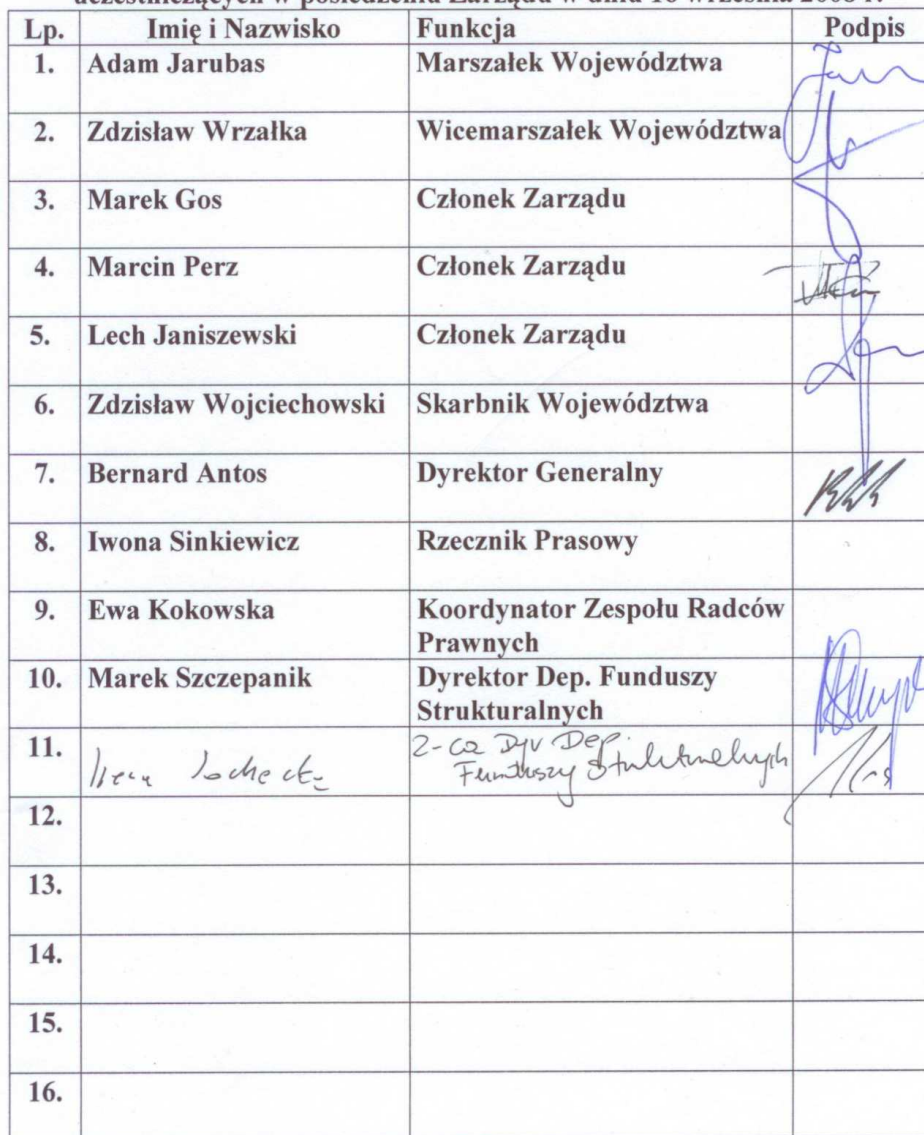 uczestniczących w posiedzeniu Zarządu w dniu września 2008 r.
Lp. Imię i Nazwisko Funkcja Podpis
1. Adam Jarubas Marszałek Województwa
2. Zdzisław Wrzałka Wicemarszałek Województwa
3. Marek Gos Członek Zarządu
4. Marcin Perz Członek Zarządu
5. Lech Janiszewski Członek Zarządu
6. Zdzisław Wojciechowski Skarbnik Województwa
7. Bernard Antos Dyrektor Generalny
8. Iwona Sinkiewicz Rzecznik Prasowy
9. Ewa Kokowska Koordynator Zespołu Radców
Prawnych
10. Marek Szczepanik Dyrektor Dep. Funduszy
Strukturalnych
11. Z-ca Dyr Dep.
Funduszy Strukturalnych
12.
13.
14.
15.
16.